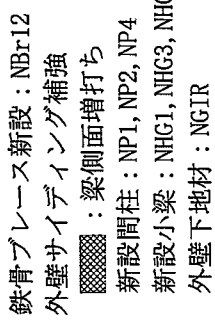 鉄骨ブレース新設：NBr12
外壁サイディング補強
：梁側面増打ち
新設間柱：NP1, NP2, NP4
新設小梁：NHG1, NHG3,
外壁下地材：NGIR